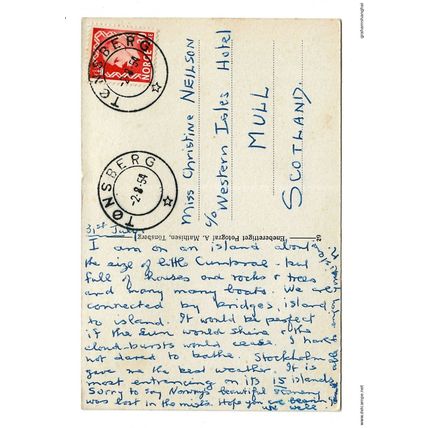 NORGE
TØNSBERG
-2.8.54
TØNSBERG
-2.8.54
Miss Christine NEILSON
c/o Western Isles Hotel
MULL
SCOTLAND.
Eneberettiget Fotograf A. Mathisen, Tönsberg
31st July.
I am on an island about
the size of little Cumbrae - but
full of houses and rocks & trees
and many many boats. We are
connected by bridges, island
to island. It would be perfect
if the sun would shine & the
cloud-bursts would cease. I have
not dared to bathe. Stockholm
gave me the best weather. It is
most entrancing on its 15 islands
Sorry to say Norway's beautiful scenery
was lost in the mists. Hope you
well
www.delcampe.net